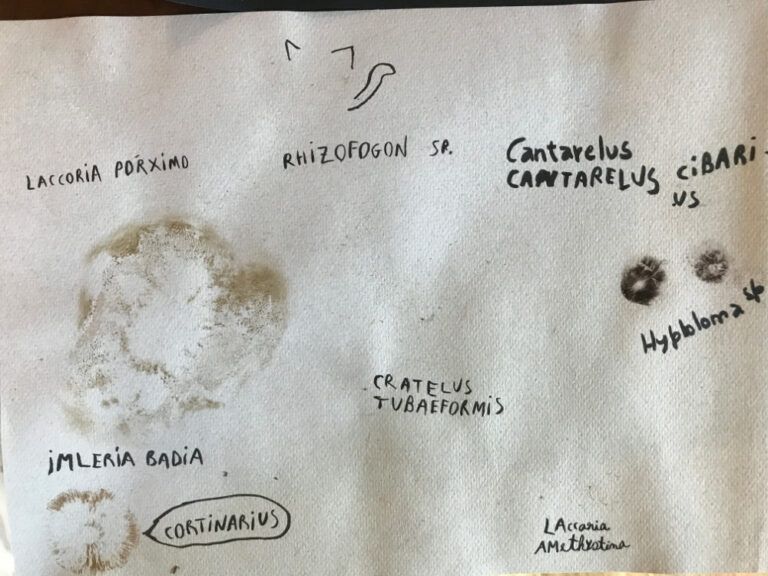 LACCORIA PORXIMO
RHIZOFOGON SR.
Cantarelus
CANTARELUS CiBARI-
US
Hypholoma sp
CRATELUS
TUBAEFORMIS
iMLERiA BADiA
CORTINARIUS
LAccaria
AMethystina